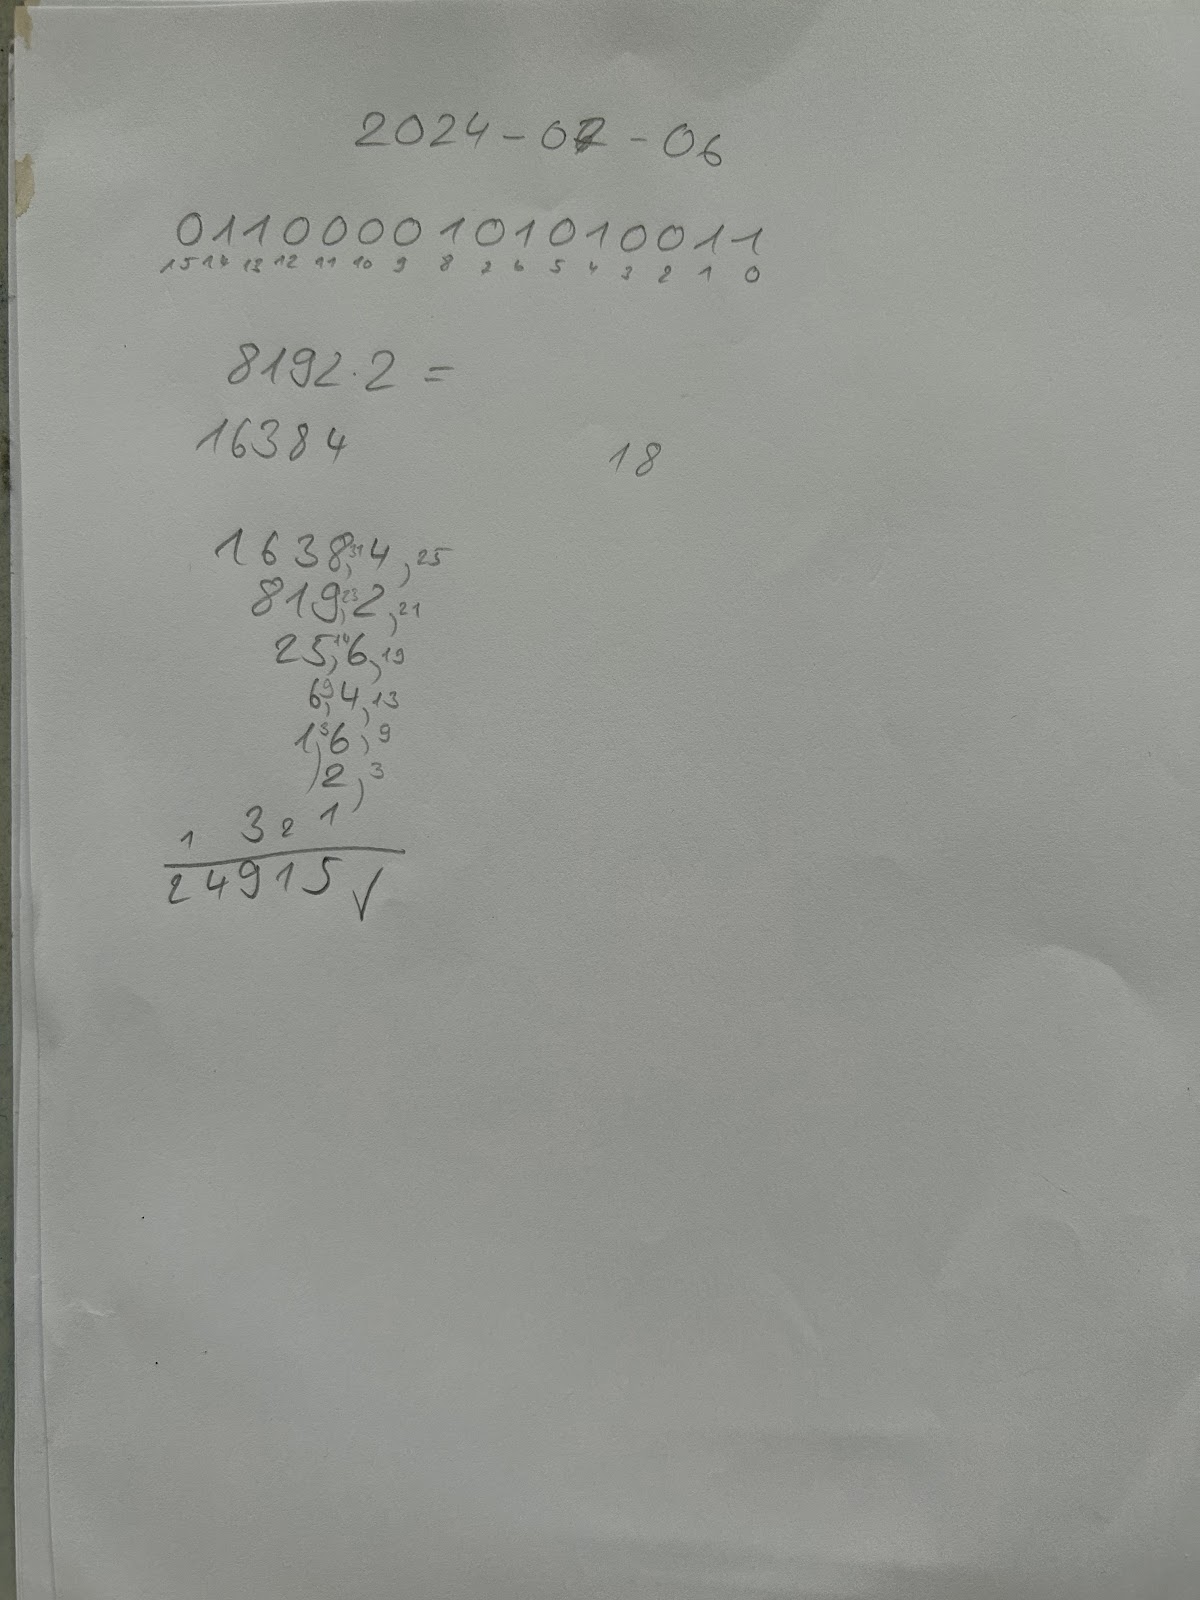 2024-07-06
0110000101010011
15 14 13 12 11 10 9 8 7 6 5 4 3 2 1 0
8192·2 =
16384
18
1638,31 4,25
819,23 2,21
25,14 6,19
6,9 4,13
1,3 6,9
,2,3
1 3 2 1
24915 √